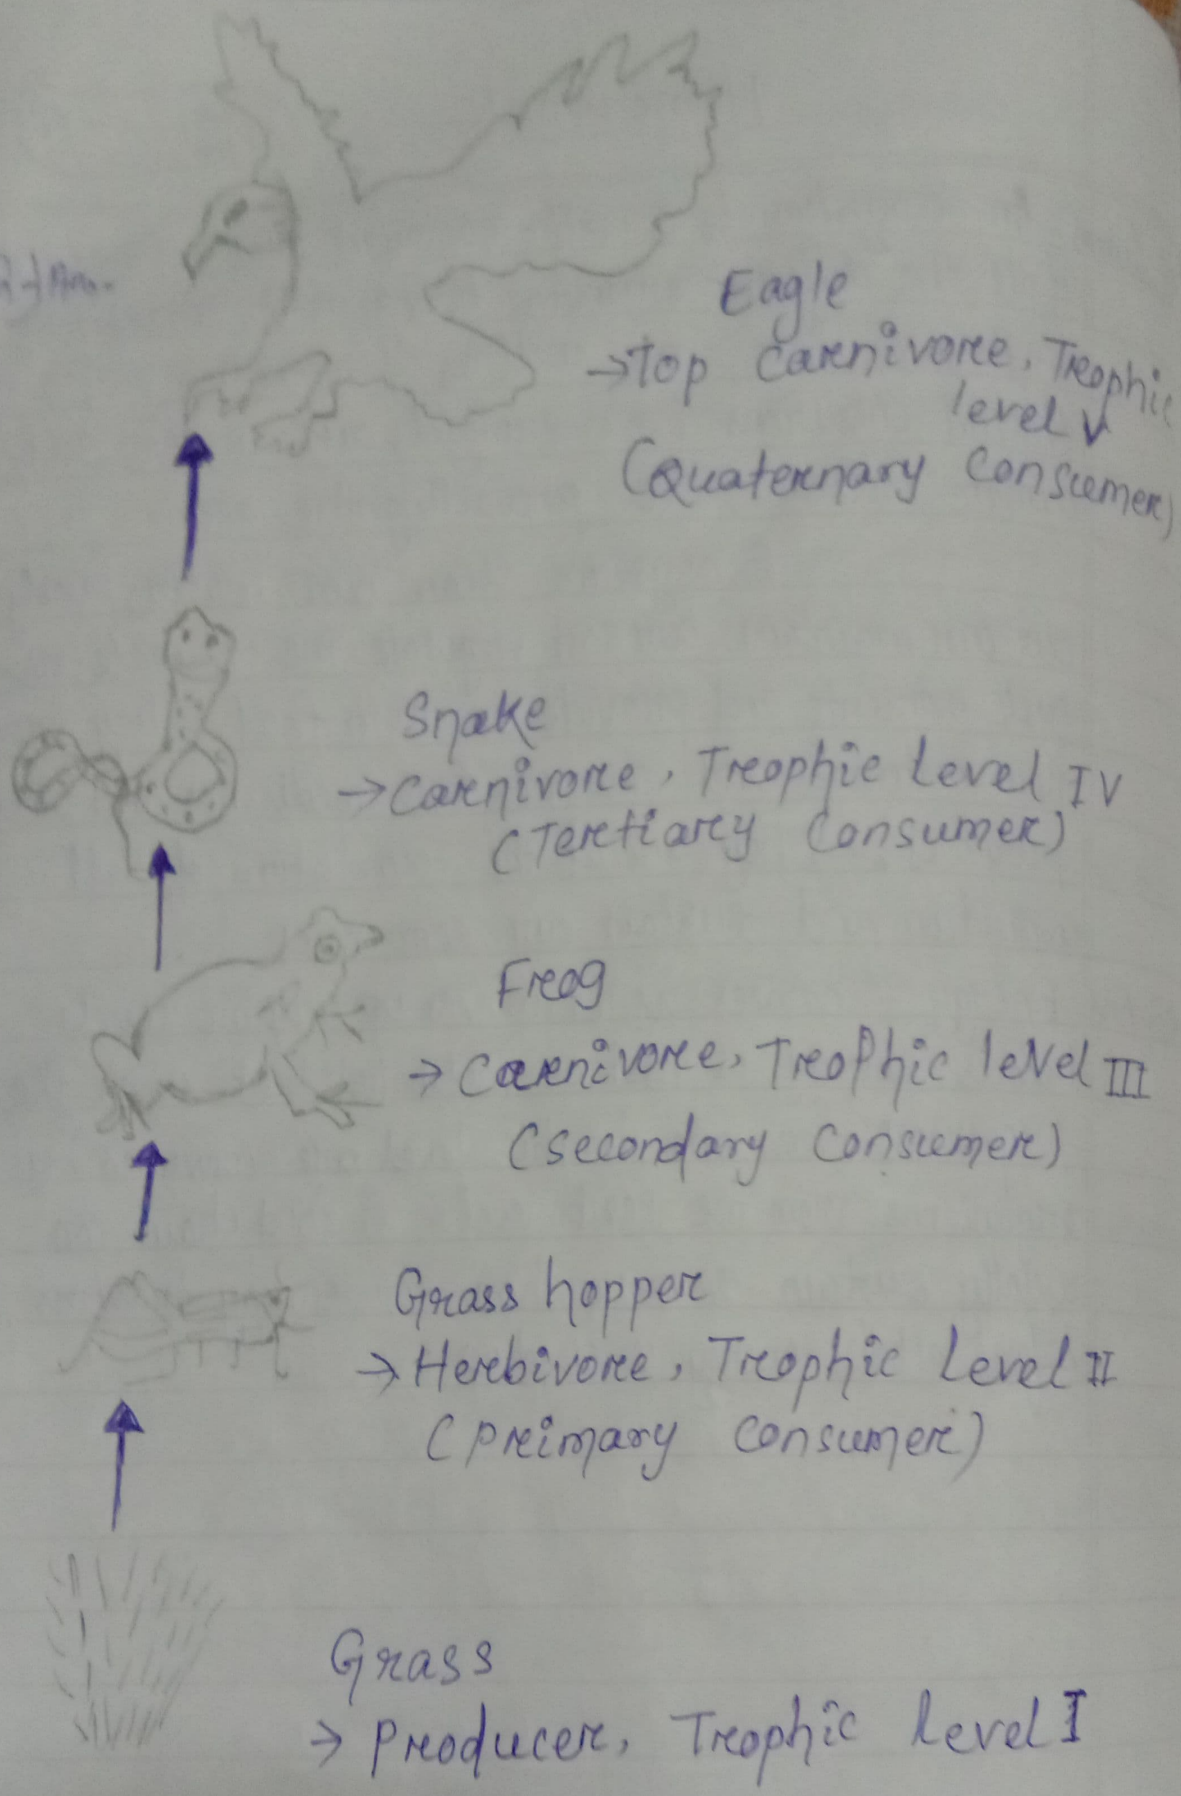 Eagle
→Top Carnivore, Trophic
level V
(Quaternary Consumer)
Snake
→Carnivore, Trophic Level IV
(Tertiary Consumer)
Frog
→ Carnivore, Trophic level III
(Secondary Consumer)
Grass hopper
→ Herbivore, Trophic Level II
(Primary Consumer)
Grass
→ Producer, Trophic Level I